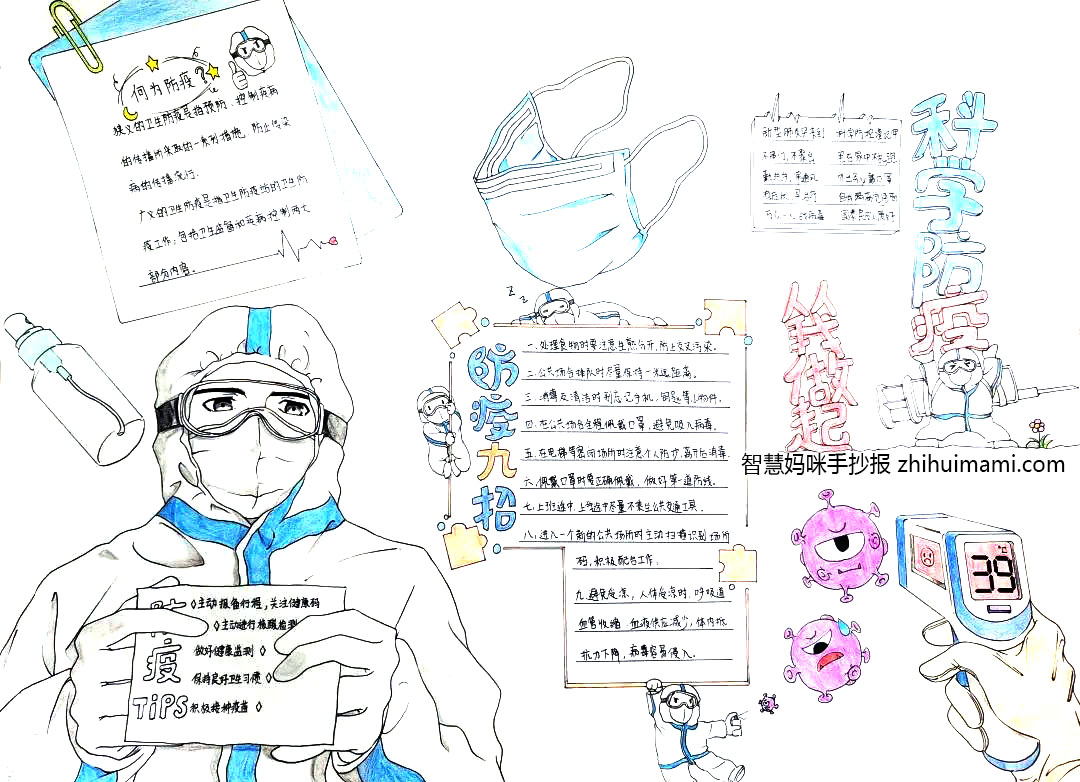 何为防疫?
狭义的卫生防疫是指预防、控制疾病
的传播所采取的一系列措施,防止传染
病的传播流行.
广义的卫生防疫是指卫生防疫站的卫生防
疫工作,包括卫生监督和疾病控制两大
部分内容。
新型肺炎
不串门,不聚会
勤洗手,常通风
科学防疫
从我做起
智慧妈咪手抄报 zhihuimami.com
防疫九招
一.处理食物时要注意生熟分开,防止交叉污染。
二.公共场合排队时尽量保持一米远距离。
三.消毒及清洁时别忘记手机、钥匙等小物件。
四.在公共场合全程佩戴口罩,避免吸入病毒。
五.在电梯等密闭场所时注意个人防护,离开后消毒.
六.佩戴口罩时要正确佩戴,做好第一道防线。
七.上班途中,上学途中尽量不乘坐公共交通工具。
八.进入一个新的公共场所时主动扫描识别场所
码,积极配合工作.
九.避免受凉,人体受凉时,呼吸道
血管收缩,血液供应减少,体内抵
抗力下降,病毒容易侵入.
防疫TiPS
主动报备行程,关注健康码
主动进行核酸检测
做好健康监测
保持良好卫生习惯
积极接种疫苗
℃
39
z z